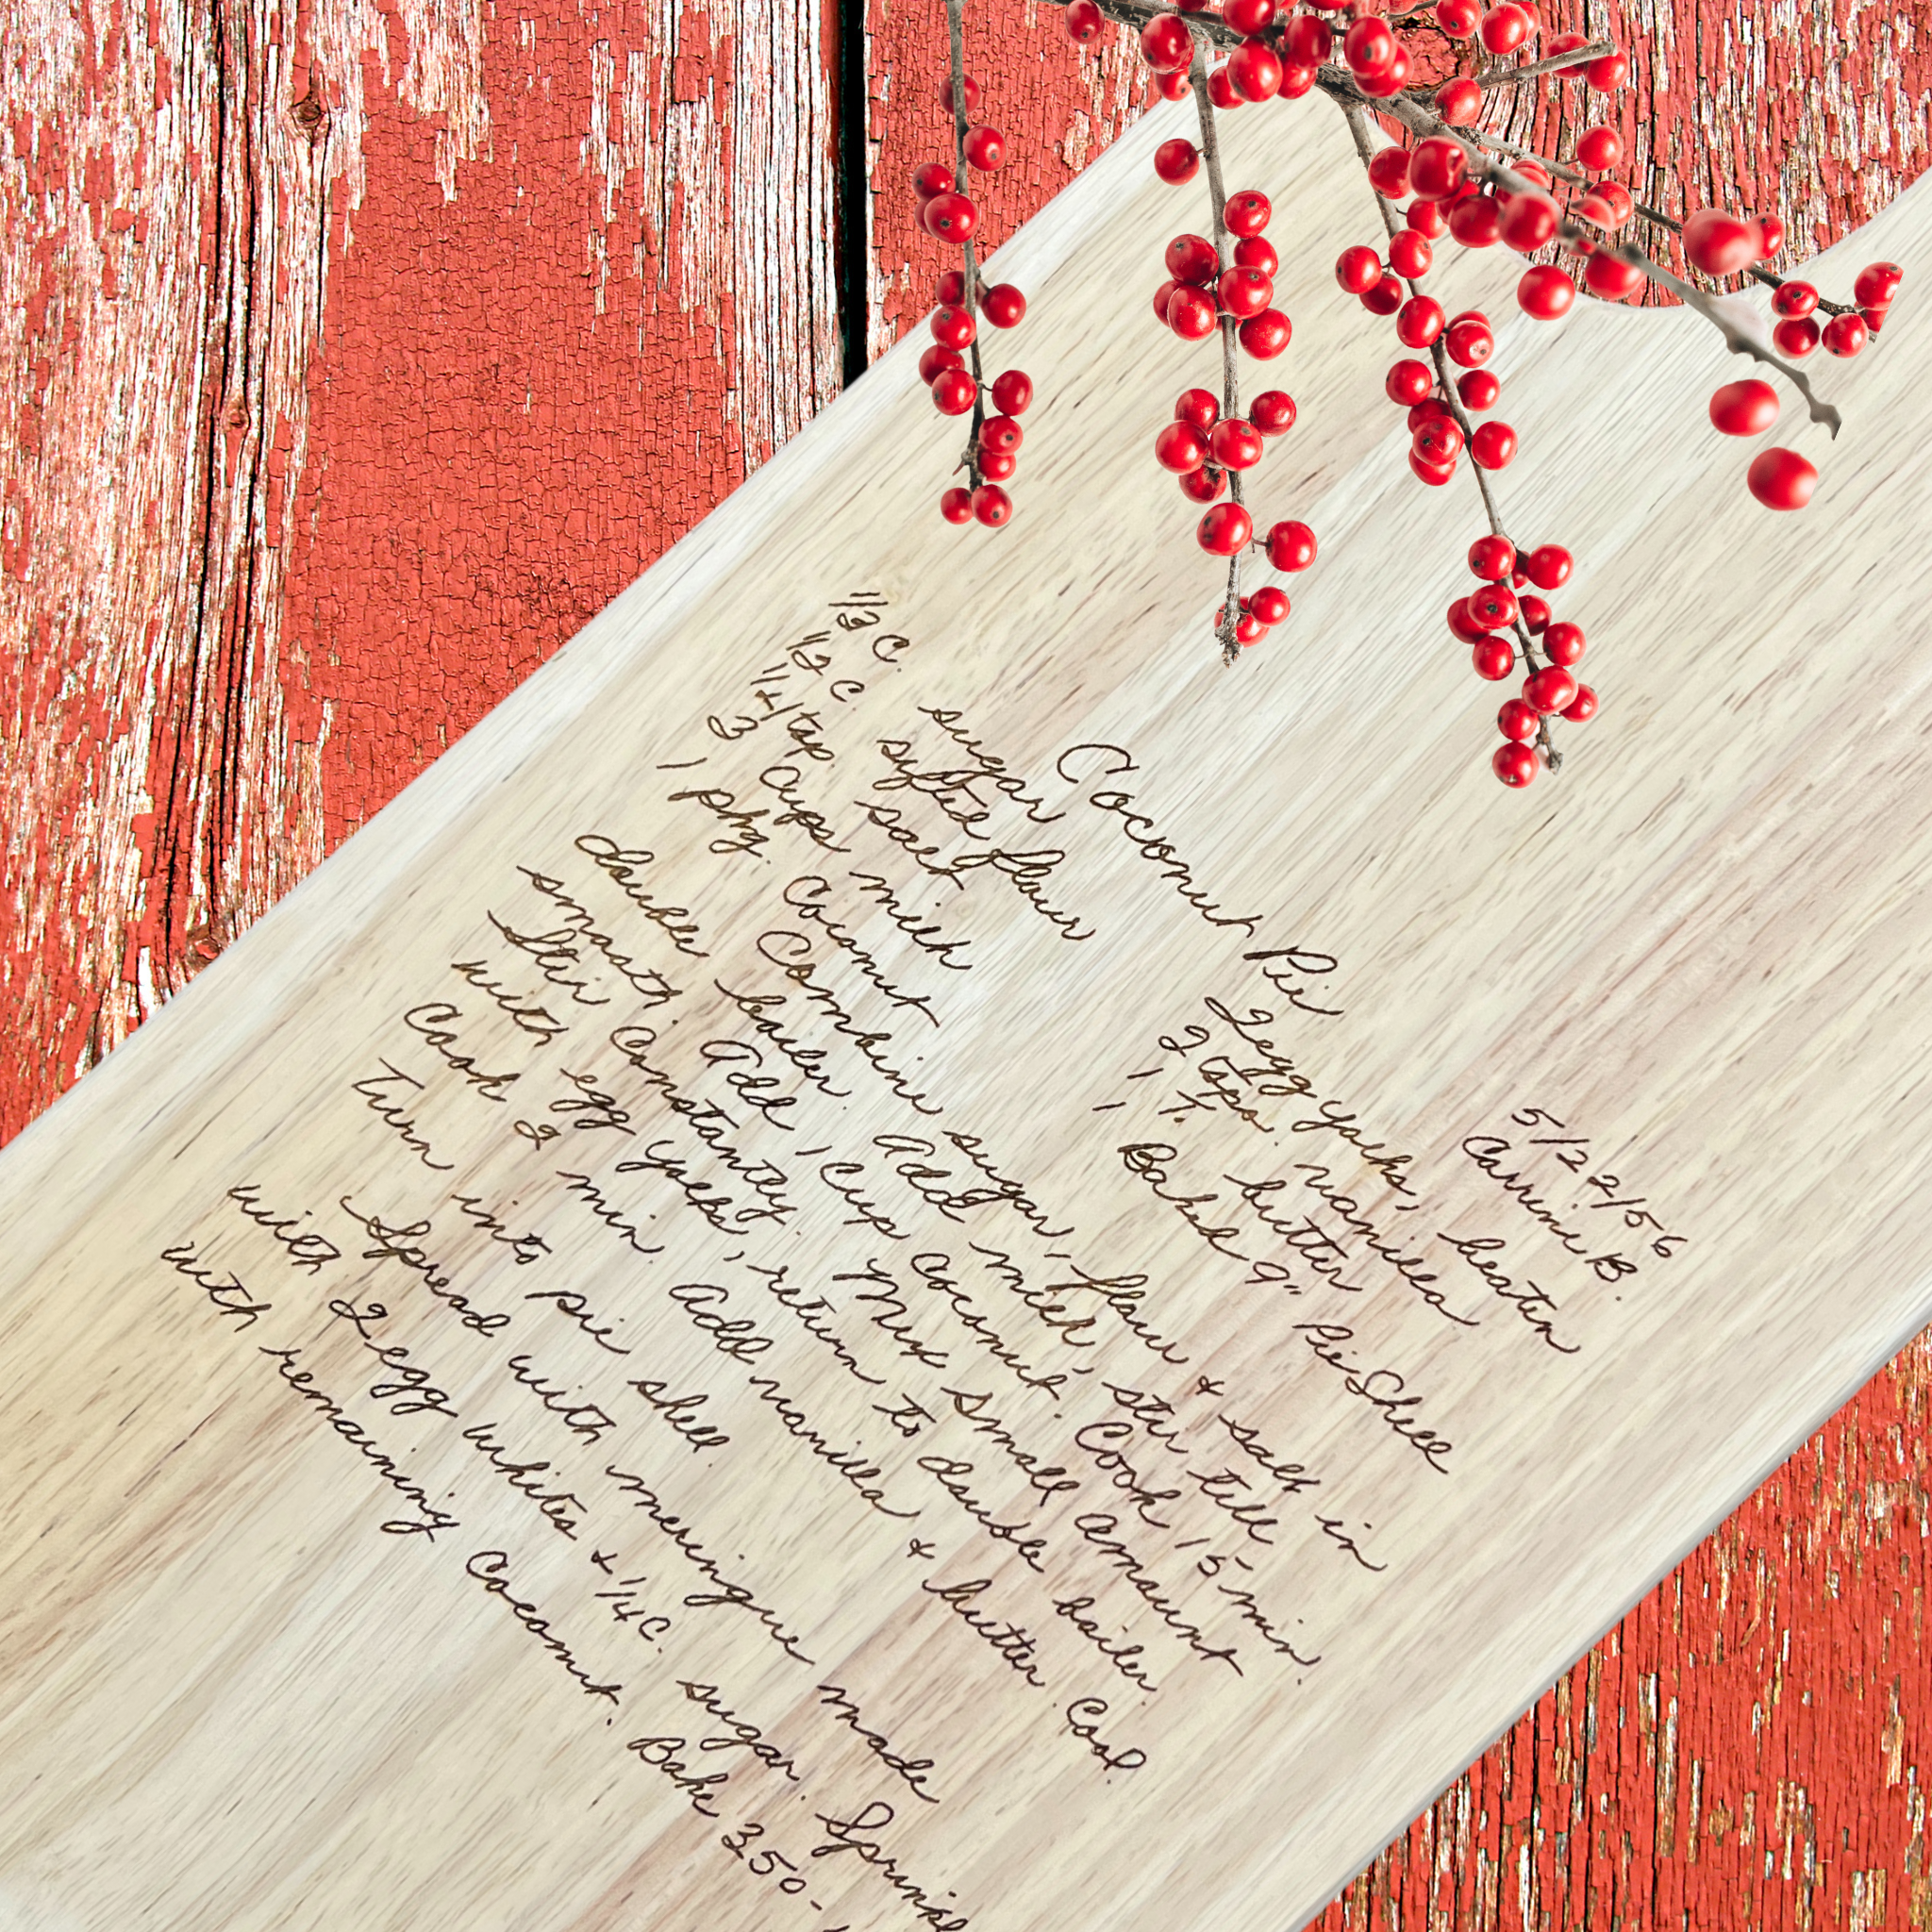 5/22/56
Coconut Pie Corrine B.
1/3 c. sugar 2 egg yolks, beaten
1/2 c. sifted flour 2 tsps. vanilla
1/4 tsp. salt 1 T. butter
3 cups milk 1 Baked 9" Pie Shell
1 pkg. coconut
Combine sugar, flour & salt in
double boiler. Add milk, stir till
smooth. Add 1 cup coconut. Cook 15 min.
Stir constantly. Mix small amount
with egg yolks, return to double boiler.
Cook 2 min. Add vanilla & butter. Cool.
Turn into pie shell.
Spread with meringue made
with 2 egg whites & 1/4 c. sugar. Sprinkl
with remaining coconut. Bake 350-